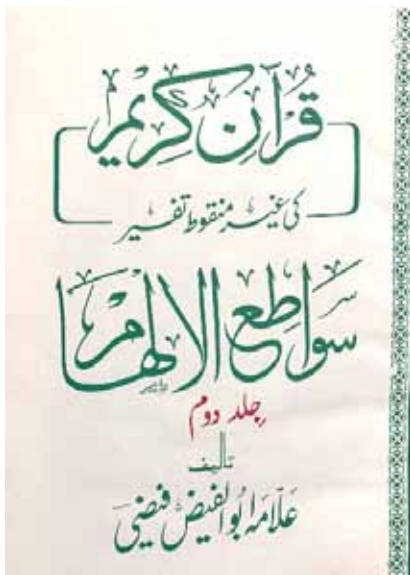 قُرآنِ کریم
کی غیر منقوط تفسیر
سواطع الالہام
جلد دوم
تالیف
علّامہ ابو الفیض فیضی